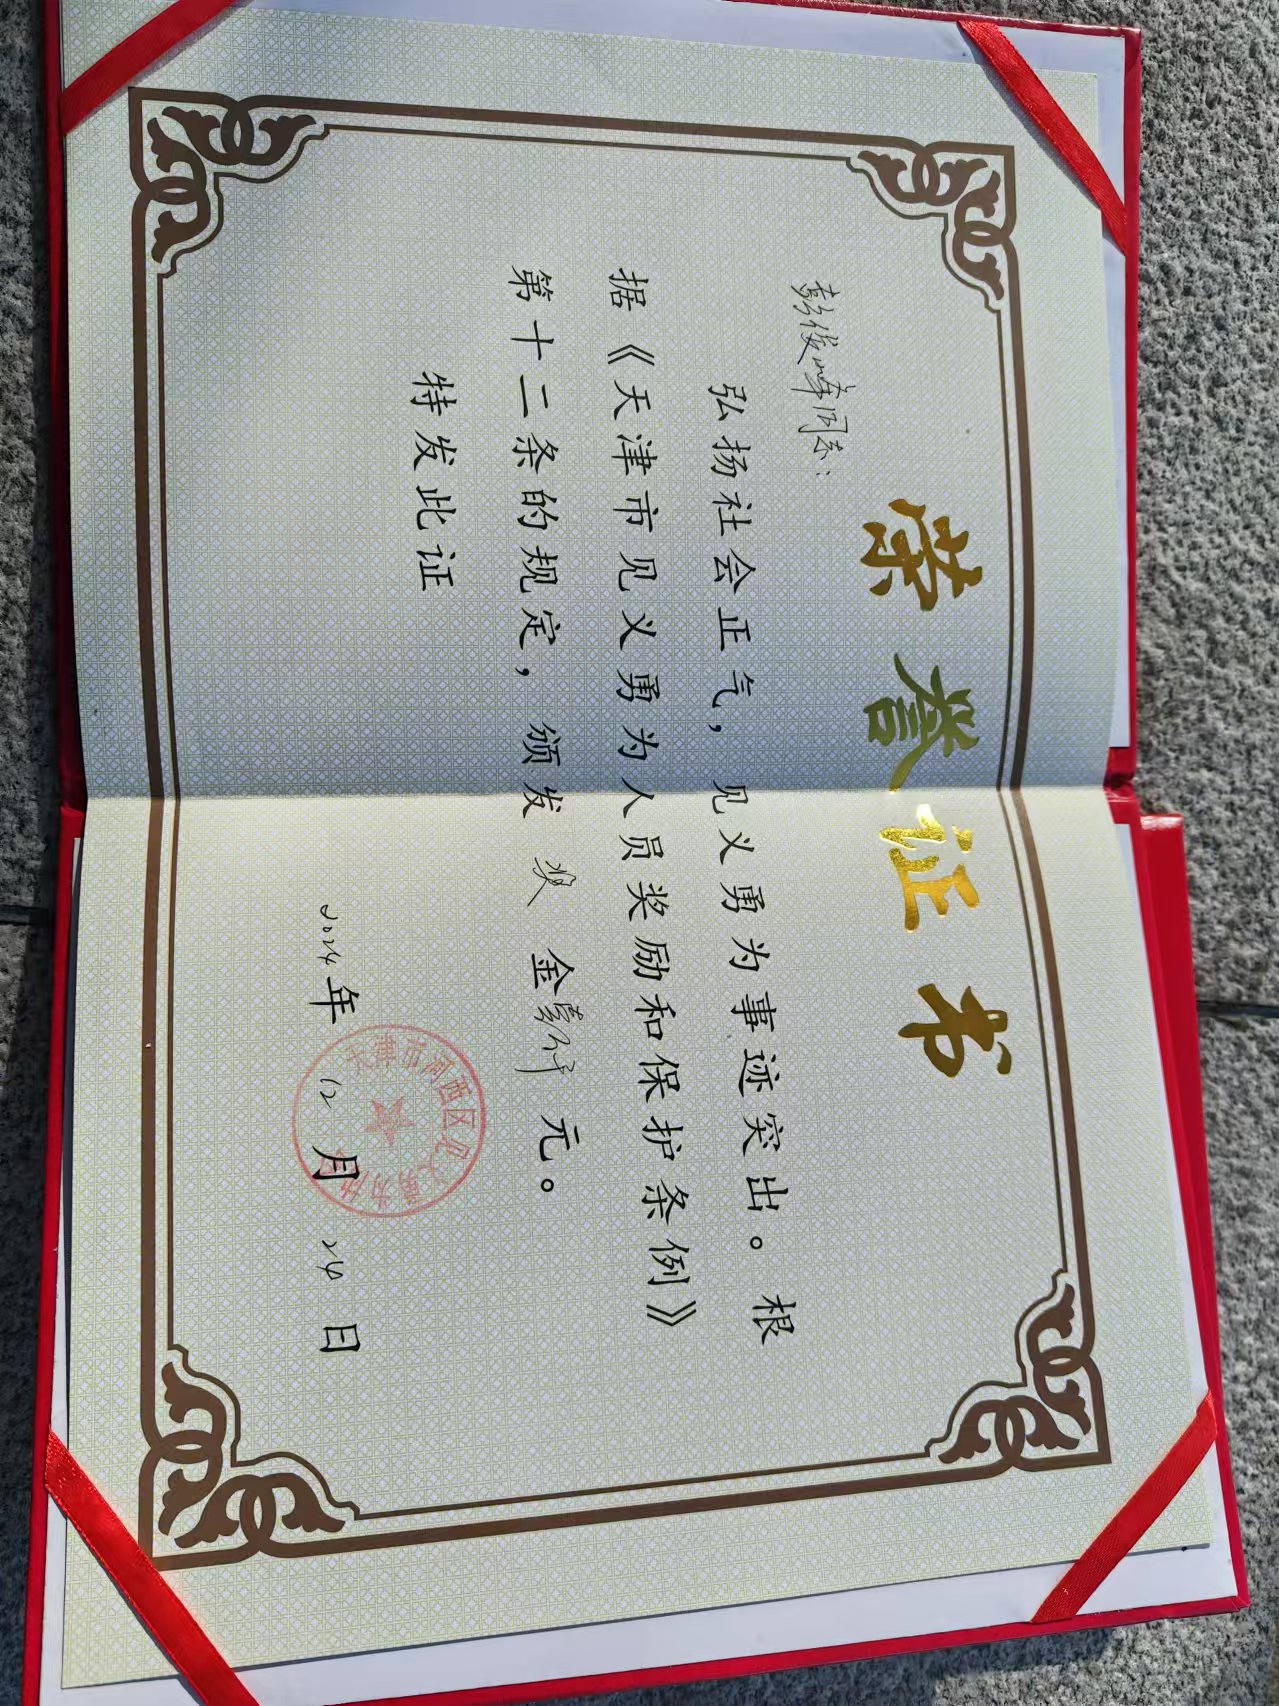 荣誉证书
彭俊峰同志：
弘扬社会正气，见义勇为事迹突出。根
据《天津市见义勇为人员奖励和保护条例》
第十二条的规定，颁发 奖 金 元。
特发此证
2024年 12 月 24 日
天津市河西区见义勇为协会